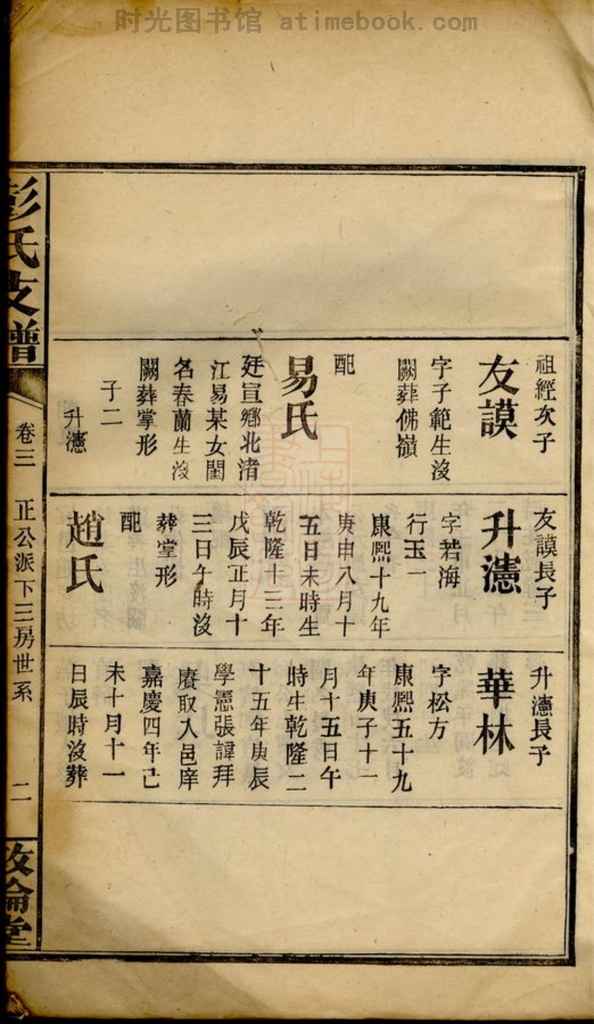 时光图书馆 atimebook.com
祖經次子
友謨
字子範生沒
闕葬佛嶺
配
易氏
廷宣鄉北渚
江易某女閨
名春蘭生沒
闕葬掌形
子二
升瀗
友謨長子
升瀗
字若海
行玉一
康熈十九年
庚申八月十
五日未時生
乾隆十三年
戊辰正月十
三日午時沒
葬堂形
配
趙氏
升瀗長子
華林
字松方
康熈五十九
年庚子十一
月十五日午
時生乾隆二
十五年庚辰
學憲張諱拜
賡取入邑庠
嘉慶四年己
未十月十一
日辰時沒葬
彭氏支譜
卷三
正公派下三房世系
二
敦倫堂